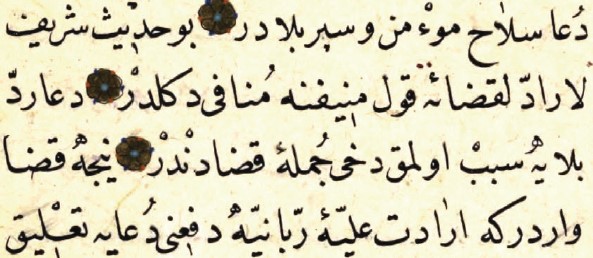 دُعا سلاح موءْمن و سپر بلا در بو حديث شريف
لا رادّ لقضائه قول منيفنه مُنافى دكلدرْ دعا ردّ
بلايه سببْ اولمق دخى جُملۀ قضادندرْ نيجه قضا
واردركه ارادت عليّۀ ربّانيّه دفعنى دُعايه تعليق